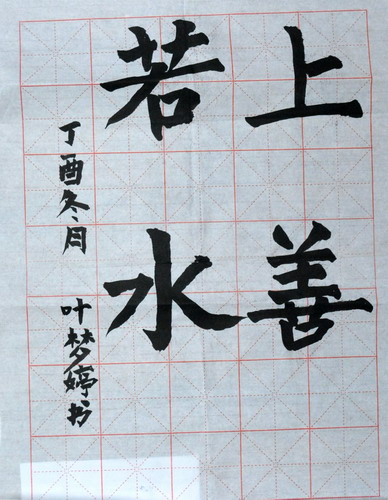 上善
若水
丁酉冬月 叶梦婷书